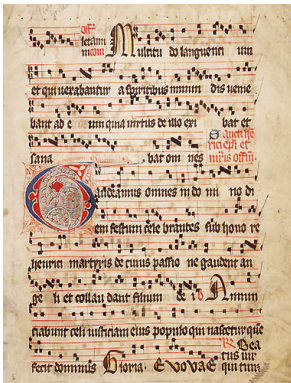 Multitudo languenti um
et qui vexabantur a spiritibus inmun dis venie
bant ad e um quia virtus de illo exi bat et
sana bat om nes
Gaudeamus omnes in do mi no di
em festum cele brantes sub hono re
henrici martyris de cuius passio ne gaudent an
ge li et collau dant filium de i
Annun
ciabunt celi iusticiam eius populo qui nascetur que
fecit dominus
Gloria Evovae
Bea
tus vir
qui tim